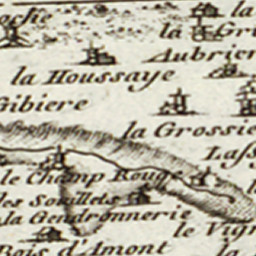 oche
la
la Gri
Aubrier
la Houssaye
Gibiere
la Grossie
Lass
le Champ Rouge
les Souillets
la Gendronnerie
le Vign
Bois d'Amont
la